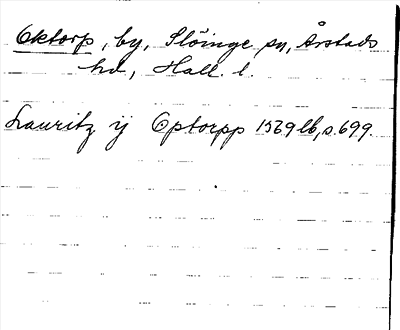 Oktorp, by, Slöinge sn, Årstads
hd, Hall. l.
Lauritz ij Optorpp 1569 lb, s. 699.